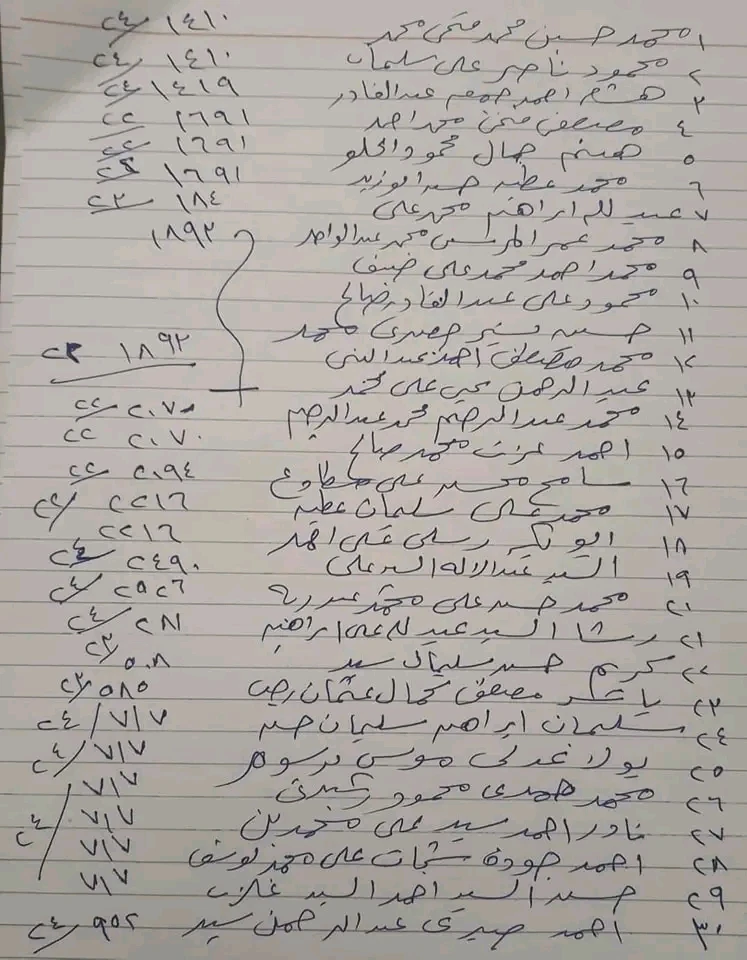 ١ محمد حسين محمد فتحى محمد ١٤١٠ /٢٤
٢ محمود ناصر على سليمان ١٤١٠ /٢٤
٣ هشام احمد جمعه عبد القادر ١٤١٩ /٢٤
٤ مصطفى فتحى محمد احمد ١٦٩١ /٢٢
٥ هيثم جمال محمود الحلو ١٦٩١ /٢٢
٦ محمد عطيه حسن ابوزيد ١٦٩١ /٢٢
٧ عبد الله ابراهيم محمد على ١٨٤ /٢٣
٨ محمد عمر محمد عبد الواحد ١٨٩٢
٩ محمد احمد محمد على ضيف
١٠ محمود على عبد القادر صالح
١١ حسين صبرى محمد
١٢ محمد مصطفى احمد عبد النبى ١٨٩٢ /٢٣
١٣ عبد الرحمن يحيى على محمد
١٤ محمد عبد الرحيم محمد عبد الرحيم ٢٠٧٠ /٢٢
١٥ احمد عزت محمد صالح ٢٠٧٠ /٢٢
١٦ سامح محسن على مطاوع ٢٠٩٤ /٢٢
١٧ محمد على سليمان عطيه ٢٢١٦ /٢٢
١٨ ابو بكر على احمد ٢٢١٦ /٢٢
١٩ السيد عبد الاله السيد على ٢٤٩٠ /٢٤
٢١ محمد حسن على محمد ٢٥٢٦ /٢٤
٢١ رشا السيد عبد الله على ابراهيم ٢٨١ /٢٤
٢٢ كريم حسن سليمان سيد ٥٠٨ /٢٣
٢٣ مصطفى كمال عثمان ٥٨٥ /٢٣
٢٤ سليمان ابراهيم سليمان حسن ٧١٧ /٢٤
٢٥ بولا عدلى موسى برسوم ٧١٧ /٢٤
٢٦ محمد حمدى محمود رشيدى ٧١٧
٢٧ نادر احمد سيد على ٧١٧ /٢٤
٢٨ احمد جودة شحات على محمد يوسف ٧١٧
٢٩ حسن السيد احمد السيد ٧١٧
٣٠ احمد صبرى عبد الرحمن سيد ٩٥٢ /٢٤